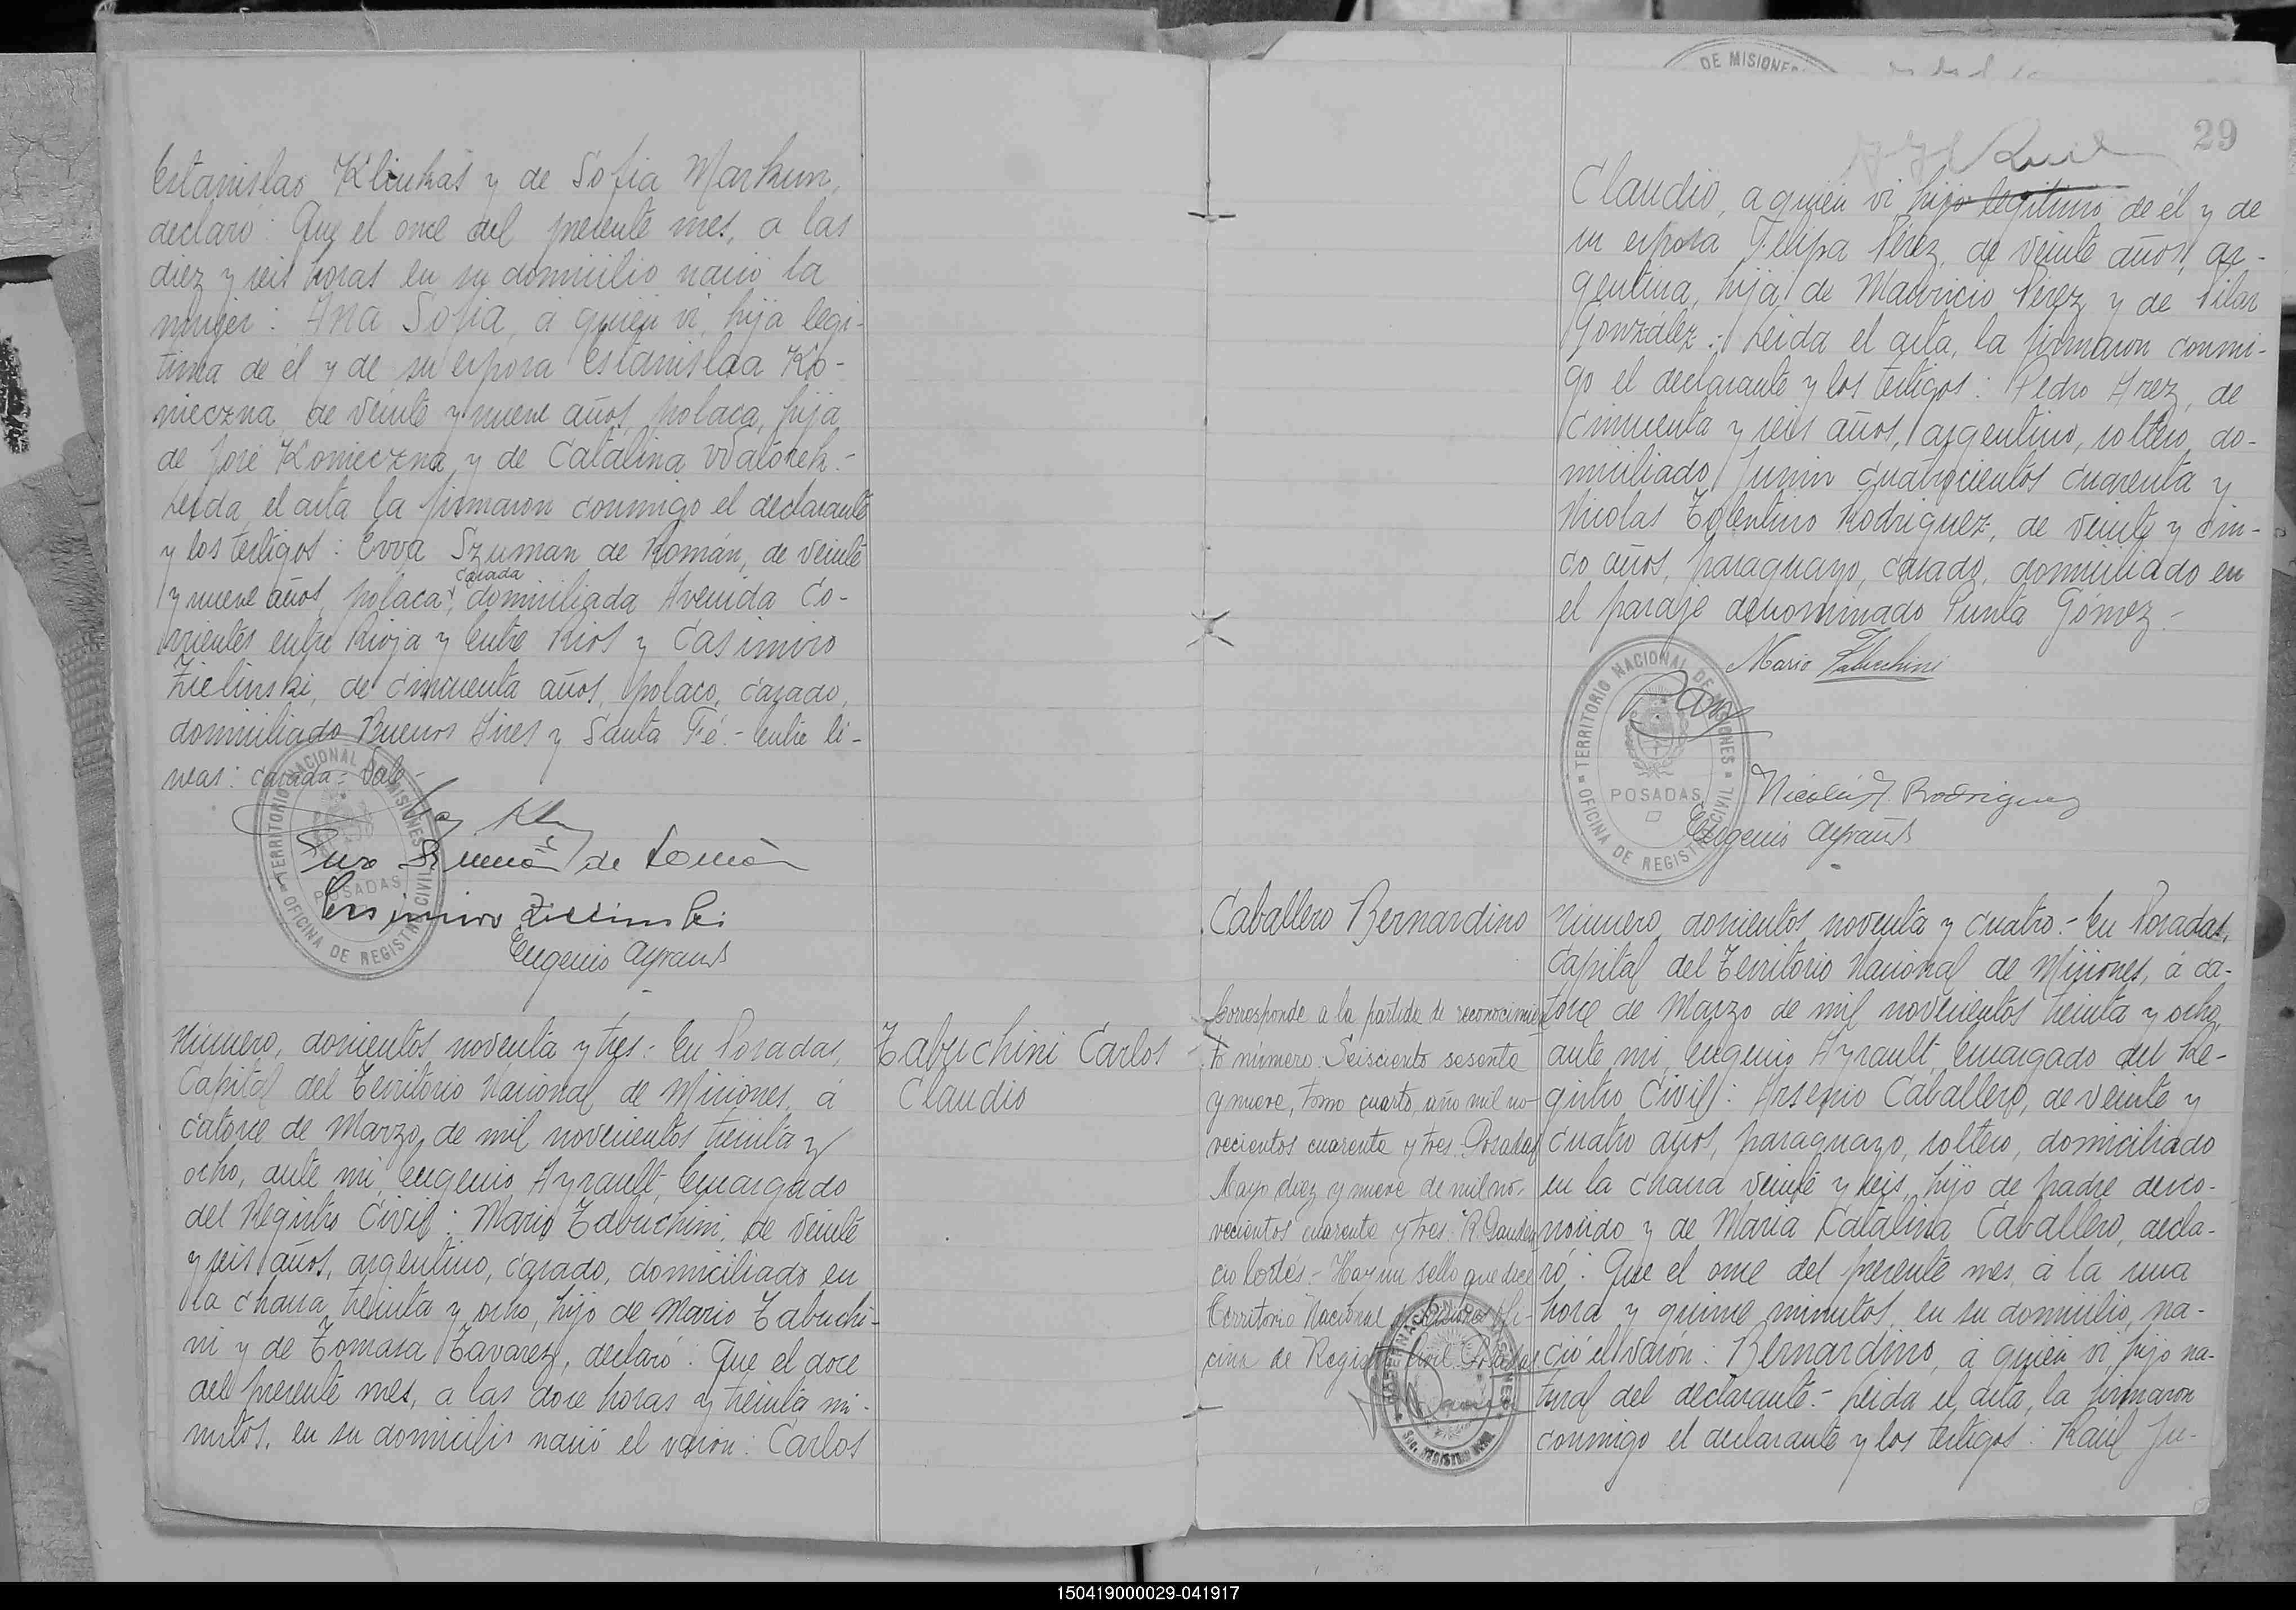 Estanislao Kliukas y de Sofia Markun,
declaró: Que el once del presente mes, a las
diez y seis horas en su domicilio nació la
mujer: Ana Sofia, a quien vi, hija legi-
tima de él y de su esposa Estanislaa Ko-
nieczna, de veinte y nueve años, polaca, hija
de José Konieczna, y de Catalina Watorek.-
Leida el acta la firmaron conmigo el declarante
y los testigos: Ewa Szuman de Román, de veinte
casada
y nueve años, polaca, domiciliada Avenida Co-
rrientes entre Rioja y Entre Rios y Casimiro
Zielinski, de cincuenta años, polaco, casado,
domiciliado Buenos Aires y Santa Fé.- Entre li-
neas: casada= Vale-
TERRITORIO NACIONAL DE MISIONES
POSADAS
OFICINA DE REGISTRO CIVIL
Ewa Szuman de Román
Casimiro Zielinski
Eugenio Ayrault
Número, doscientos noventa y tres: En Posadas,
Capital del Territorio Nacional de Misiones, á
catorce de Marzo, de mil novecientos treinta y
ocho, ante mi, Eugenio Ayrault, Encargado
del Registro Civil: Mario Tabuchini, de veinte
y seis años, argentino, casado, domiciliado en
la chacra treinta y ocho, hijo de Mario Tabuchi-
ni y de Tomasa Tavarez, declaró: Que el doce
del presente mes, a las doce horas y treinta mi-
nutos, en su domicilio nació el varon: Carlos
Tabuchini Carlos
Claudio
DE MISIONES
29
Claudio, a quien vi hijo legitimo de él y de
su esposa Felipa Pérez, de veinte años, ar-
gentina, hija de Mauricio Perez y de Pilar
González.- Leida el acta, la firmaron conmi-
go el declarante y los testigos: Pedro Arez, de
cincuenta y seis años, argentino, soltero, do-
miciliado Junin cuatrocientos cuarenta y
Nicolas Tolentino Rodriguez, de veinte y cin-
co años, paraguayo, casado, domiciliado en
el paraje denominado Punta Gómez.-
Mario Tabuchini
TERRITORIO NACIONAL DE MISIONES
POSADAS
OFICINA DE REGISTRO CIVIL
Nicolás T. Rodriguez
Eugenio Ayrault
Caballero Bernardino
Número, doscientos noventa y cuatro.- En Posadas,
Capital del Territorio Nacional de Misiones, á ca-
torce de Marzo de mil novecientos treinta y ocho,
ante mi, Eugenio Ayrault, Encargado del Re-
gistro Civil: Arsenio Caballero, de veinte y
cuatro años, paraguayo, soltero, domiciliado
en la chacra veinte y seis, hijo de padre desco-
nocido y de Maria Catalina Caballero, decla-
ró: Que el once del presente mes, á la una
hora y quince minutos, en su domicilio, na-
ció el varón: Bernardino, á quien vi hijo na-
tural del declarante.- Leida el acta, la firmaron
conmigo el declarante y los testigos: Raúl Ju-
Corresponde a la partida de reconocimien
to número Seisciento sesenta
y nueve, tomo cuarto, año mil no-
vecientos cuarenta y tres. Posadas
Mayo diez y nueve de mil no-
vecientos cuarenta y tres. R.
cio Cortés.- Hay un sello que dice
Territorio Nacional de Misiones Ofi-
cina de Registro Civil. Posadas